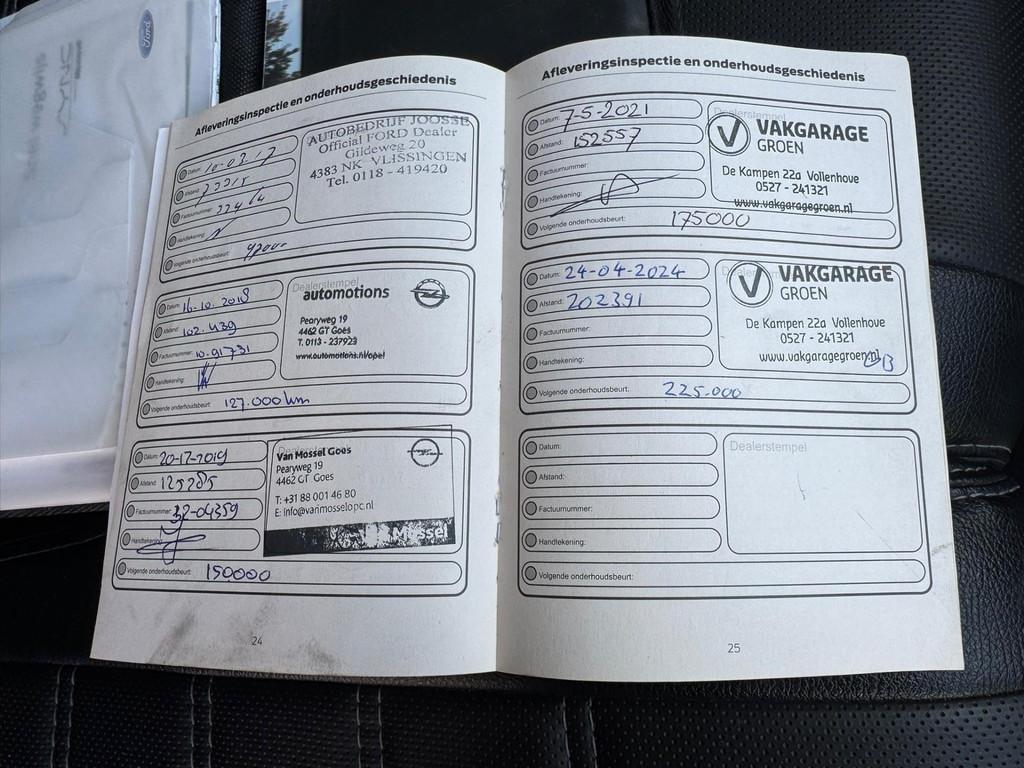 Ford
Afleveringsinspectie en onderhoudsgeschiedenis
Datum: 10-03-17
Afstand:
Factuurnummer:
Handtekening:
Volgende onderhoudsbeurt:
AUTOBEDRIJF JOOSSE
Official FORD Dealer
Gildeweg 20
4383 NK VLISSINGEN
Tel. 0118 - 419420
Datum: 16-10-2018
Afstand: 102.439
Factuurnummer: 10-91731
Handtekening:
Volgende onderhoudsbeurt: 127.000 km
Dealerstempel
automotions
Pearyweg 19
4462 GT Goes
T. 0113 - 237923
www.automotions.nl/opel
Datum: 20-17-2019
Afstand: 125285
Factuurnummer: 32-04359
Handtekening:
Volgende onderhoudsbeurt: 150000
Dealerstempel
Van Mossel Goes
Pearyweg 19
4462 GT Goes
T: +31 88 001 46 80
E: info@vanmosselopc.nl
Van Mossel
24
Afleveringsinspectie en onderhoudsgeschiedenis
Datum: 7-5-2021
Afstand: 152557
Factuurnummer:
Handtekening:
Volgende onderhoudsbeurt: 175000
Dealerstempel
VAKGARAGE
GROEN
De Kampen 22a Vollenhove
0527 - 241321
www.vakgaragegroen.nl
Datum: 24-04-2024
Afstand: 202391
Factuurnummer:
Handtekening:
Volgende onderhoudsbeurt: 225.000
Dealerstempel
VAKGARAGE
GROEN
De Kampen 22a Vollenhove
0527 - 241321
www.vakgaragegroen.nl
Datum:
Afstand:
Factuurnummer:
Handtekening:
Volgende onderhoudsbeurt:
Dealerstempel
25